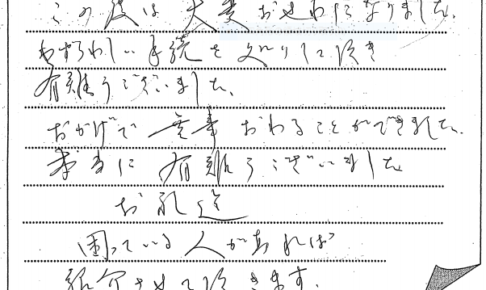 この度は大変おせわになりました。
わずらわしい手続を 又りして頂き
有難うございました。
おかげで無事おわることができました。
本当に有難うございました
お礼迄
困っている人があれば
紹介させて頂きます。